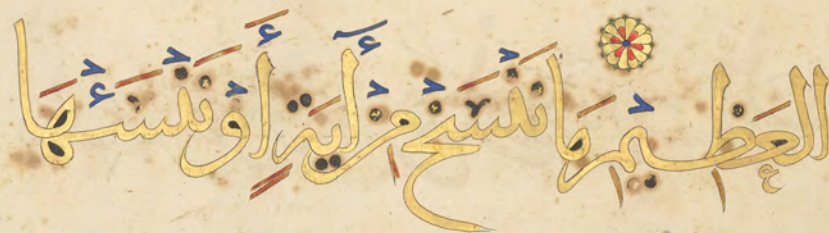 العَظِيمِ مَا نَنْسَخْ مِنْ أٓيَةٍ أَوْ نَنْسَـْٔهَا